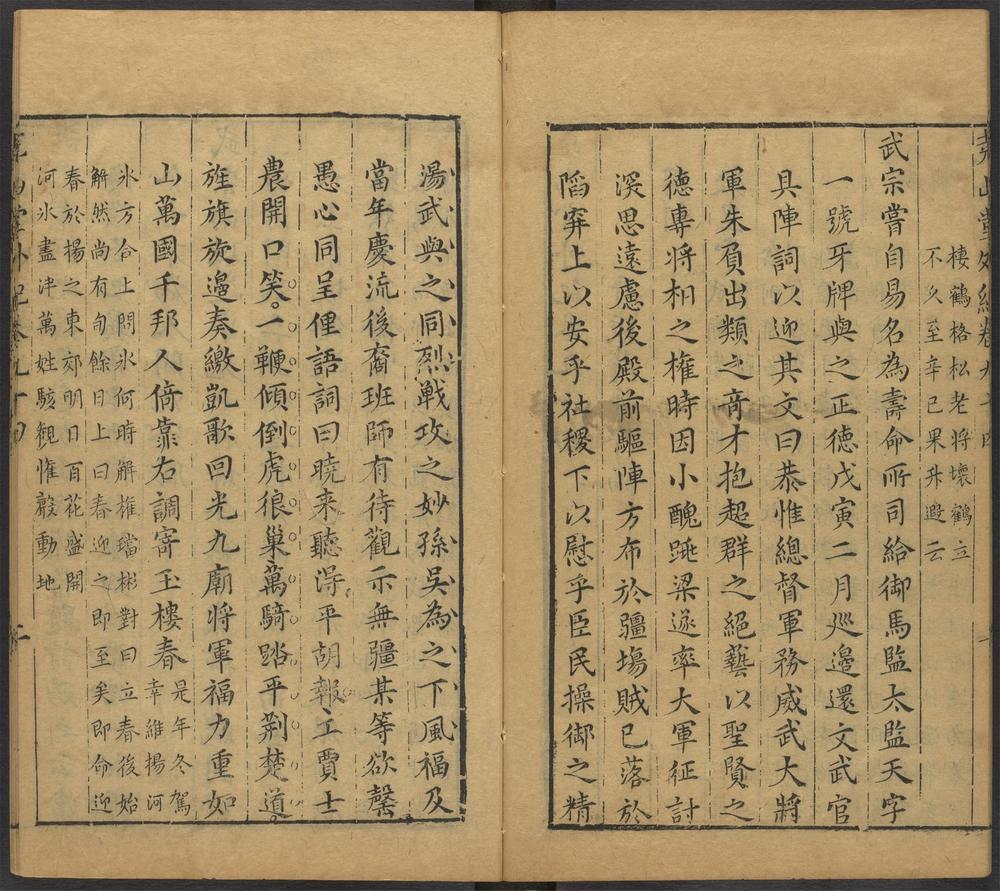 堯山堂外紀卷九十四
棲鶴格松老將壞鶴立
不久至辛已果升遐云
武宗嘗自易名為壽命所司給御馬監太監天字
一號牙牌與之正德戊寅二月廵邉還文武官
具陣詞以迎其文曰恭惟總督軍務威武大將
軍朱頁出類之竒才抱超群之絕藝以聖賢之
德專將相之權時因小醜跳梁遂率大軍征討
深思遠慮後殿前驅陣方布於疆塲賊已落於
䧟穽上以安乎社稷下以慰乎臣民操御之精
湯武與之同烈戰攻之妙孫吳為之下風福及
當年慶流後裔班師有待觀示無疆某等欲罄
愚心同呈俚語詞曰曉来聽淂平胡報工賈士
農開口笑一鞭傾倒虎狼巢萬騎踏平荆楚道
旌旗旋邉奏繳凱歌回光九廟將軍福力重如
山萬國千邦人倚靠右調寄玉樓春是年冬駕
幸維揚河
氷方合上問氷何時解權璫彬對曰立春後始
解然尚有旬餘日上曰春迎之即至矣即命迎
春於揚之東郊明日百花盛開
河氷盡泮萬姓駭觀惟殽動地
堯山堂外紀卷九十四